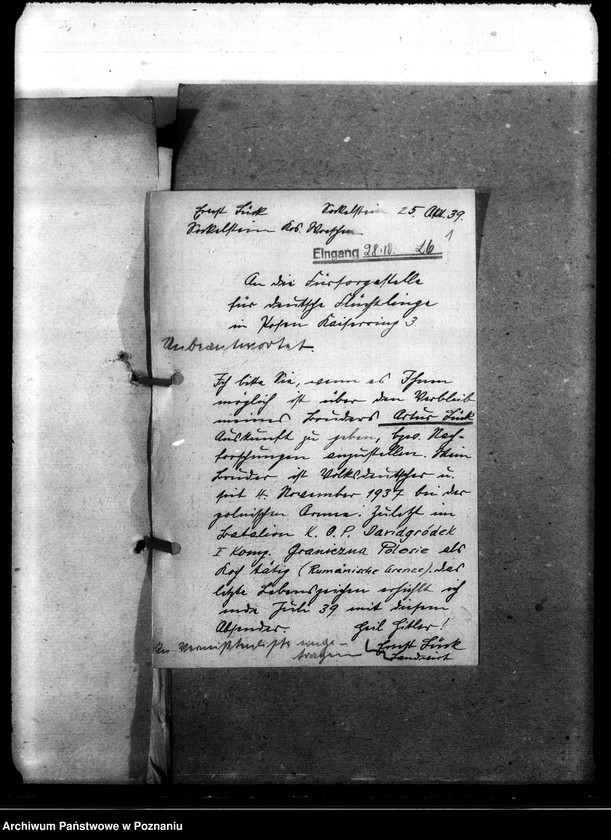 Ernst Lück Sockelstein 25. Okt. 39.
Sockelstein Krs. Wreschen
1
Eingang 28.10. 26
An die Fürsorgestelle
für deutsche Flüchtlinge
in Posen Kaiserring 3
Unbeantwortet.
Ich bitte Sie, wenn es Ihnen
möglich ist über den Verbleib
meines Bruders Artur Lück
Auskunft zu geben, bzw. Nach-
forschungen anzustellen. Mein
Bruder ist Volksdeutscher u.
seit 4. November 1937 bei der
polnischen Armee. Zuletzt im
Batalion K. O. P. Dawidgródek
I Komp. Graniczna Polesie als
Koch tätig (Rumänische Grenze). Das
letzte Lebenszeichen erhielt ich
ende Juli 39 mit diesem
Absender. Heil Hitler!
In Vermißtenliste einge-
tragen
Ernst Lück
Landwirt
Archiwum Państwowe w Poznaniu